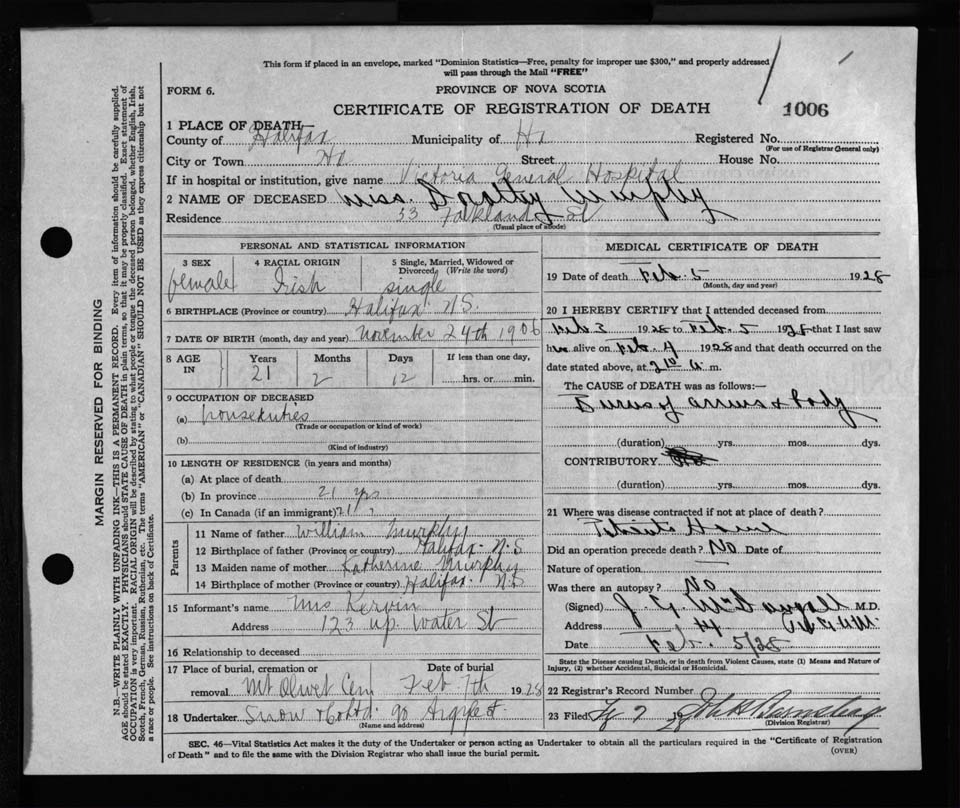 This form if placed in an envelope, marked "Dominion Statistics—Free, penalty for improper use $300," and properly addressed
will pass through the Mail "FREE"
FORM 6.
PROVINCE OF NOVA SCOTIA
CERTIFICATE OF REGISTRATION OF DEATH
1006
1 PLACE OF DEATH—
County of Halifax Municipality of Hx Registered No.
(For use of Registrar General only)
City or Town Hx Street House No.
If in hospital or institution, give name Victoria General Hospital
2 NAME OF DECEASED Miss. Dorothy Murphy
Residence 33 Falkland St
(Usual place of abode)
PERSONAL AND STATISTICAL INFORMATION
3 SEX 4 RACIAL ORIGIN 5 Single, Married, Widowed or
Divorced (Write the word)
female Irish single
6 BIRTHPLACE (Province or country) Halifax N.S.
7 DATE OF BIRTH (month, day and year) November 24th 1906
8 AGE IN Years Months Days If less than one day,
21 2 12 hrs. or min.
9 OCCUPATION OF DECEASED
(a) houseduties
(Trade or occupation or kind of work)
(b)
(Kind of industry)
10 LENGTH OF RESIDENCE (in years and months)
(a) At place of death
(b) In province 21 yrs
(c) In Canada (if an immigrant) 21 "
Parents
11 Name of father William Murphy
12 Birthplace of father (Province or country) Halifax. N.S
13 Maiden name of mother Katherine Murphy
14 Birthplace of mother (Province or country) Halifax. N.S
15 Informant's name Mrs Kervin
Address 123 up. Water St
16 Relationship to deceased
17 Place of burial, cremation or Date of burial
removal Mt Olivet Cem Feb 7th 1928
18 Undertaker Snow & Co Ltd. 90 Argyle St.
(Name and address)
MEDICAL CERTIFICATE OF DEATH
19 Date of death Feb. 5 1928
(Month, day and year)
20 I HEREBY CERTIFY that I attended deceased from
Feb 3 1928 to Feb. 5 1928 that I last saw
h alive on Feb 4 1928 and that death occurred on the
date stated above, at 2 10 a. m.
The CAUSE of DEATH was as follows:—
Burns of arms & body
(duration) yrs. mos. dys.
CONTRIBUTORY
(duration) yrs. mos. dys.
21 Where was disease contracted if not at place of death?
Home
Did an operation precede death? No Date of
Nature of operation
Was there an autopsy? No
(Signed) M.D.
Address
Date Feb. 5/28
State the Disease causing Death, or in death from Violent Causes, state (1) Means and Nature of
Injury, (2) whether Accidental, Suicidal or Homicidal.
22 Registrar's Record Number
23 Filed 7 28
(Division Registrar)
SEC. 46—Vital Statistics Act makes it the duty of the Undertaker or person acting as Undertaker to obtain all the particulars required in the "Certificate of Registration
of Death" and to file the same with the Division Registrar who shall issue the burial permit.
(OVER)
MARGIN RESERVED FOR BINDING
N.B.—WRITE PLAINLY WITH UNFADING INK—THIS IS A PERMANENT RECORD. Every item of information should be carefully supplied.
AGE should be stated EXACTLY. PHYSICIANS should STATE CAUSE OF DEATH in plain terms, so that it may be properly classified. Exact statement of
OCCUPATION is very important. RACIAL ORIGIN will be described by stating to what people or tongue the deceased person belonged, whether English, Irish,
Scotch, French, German, Russian, Ruthenian, etc. The terms "AMERICAN" or "CANADIAN" SHOULD NOT BE USED as they express citizenship but not
a race or people. See instructions on back of Certificate.